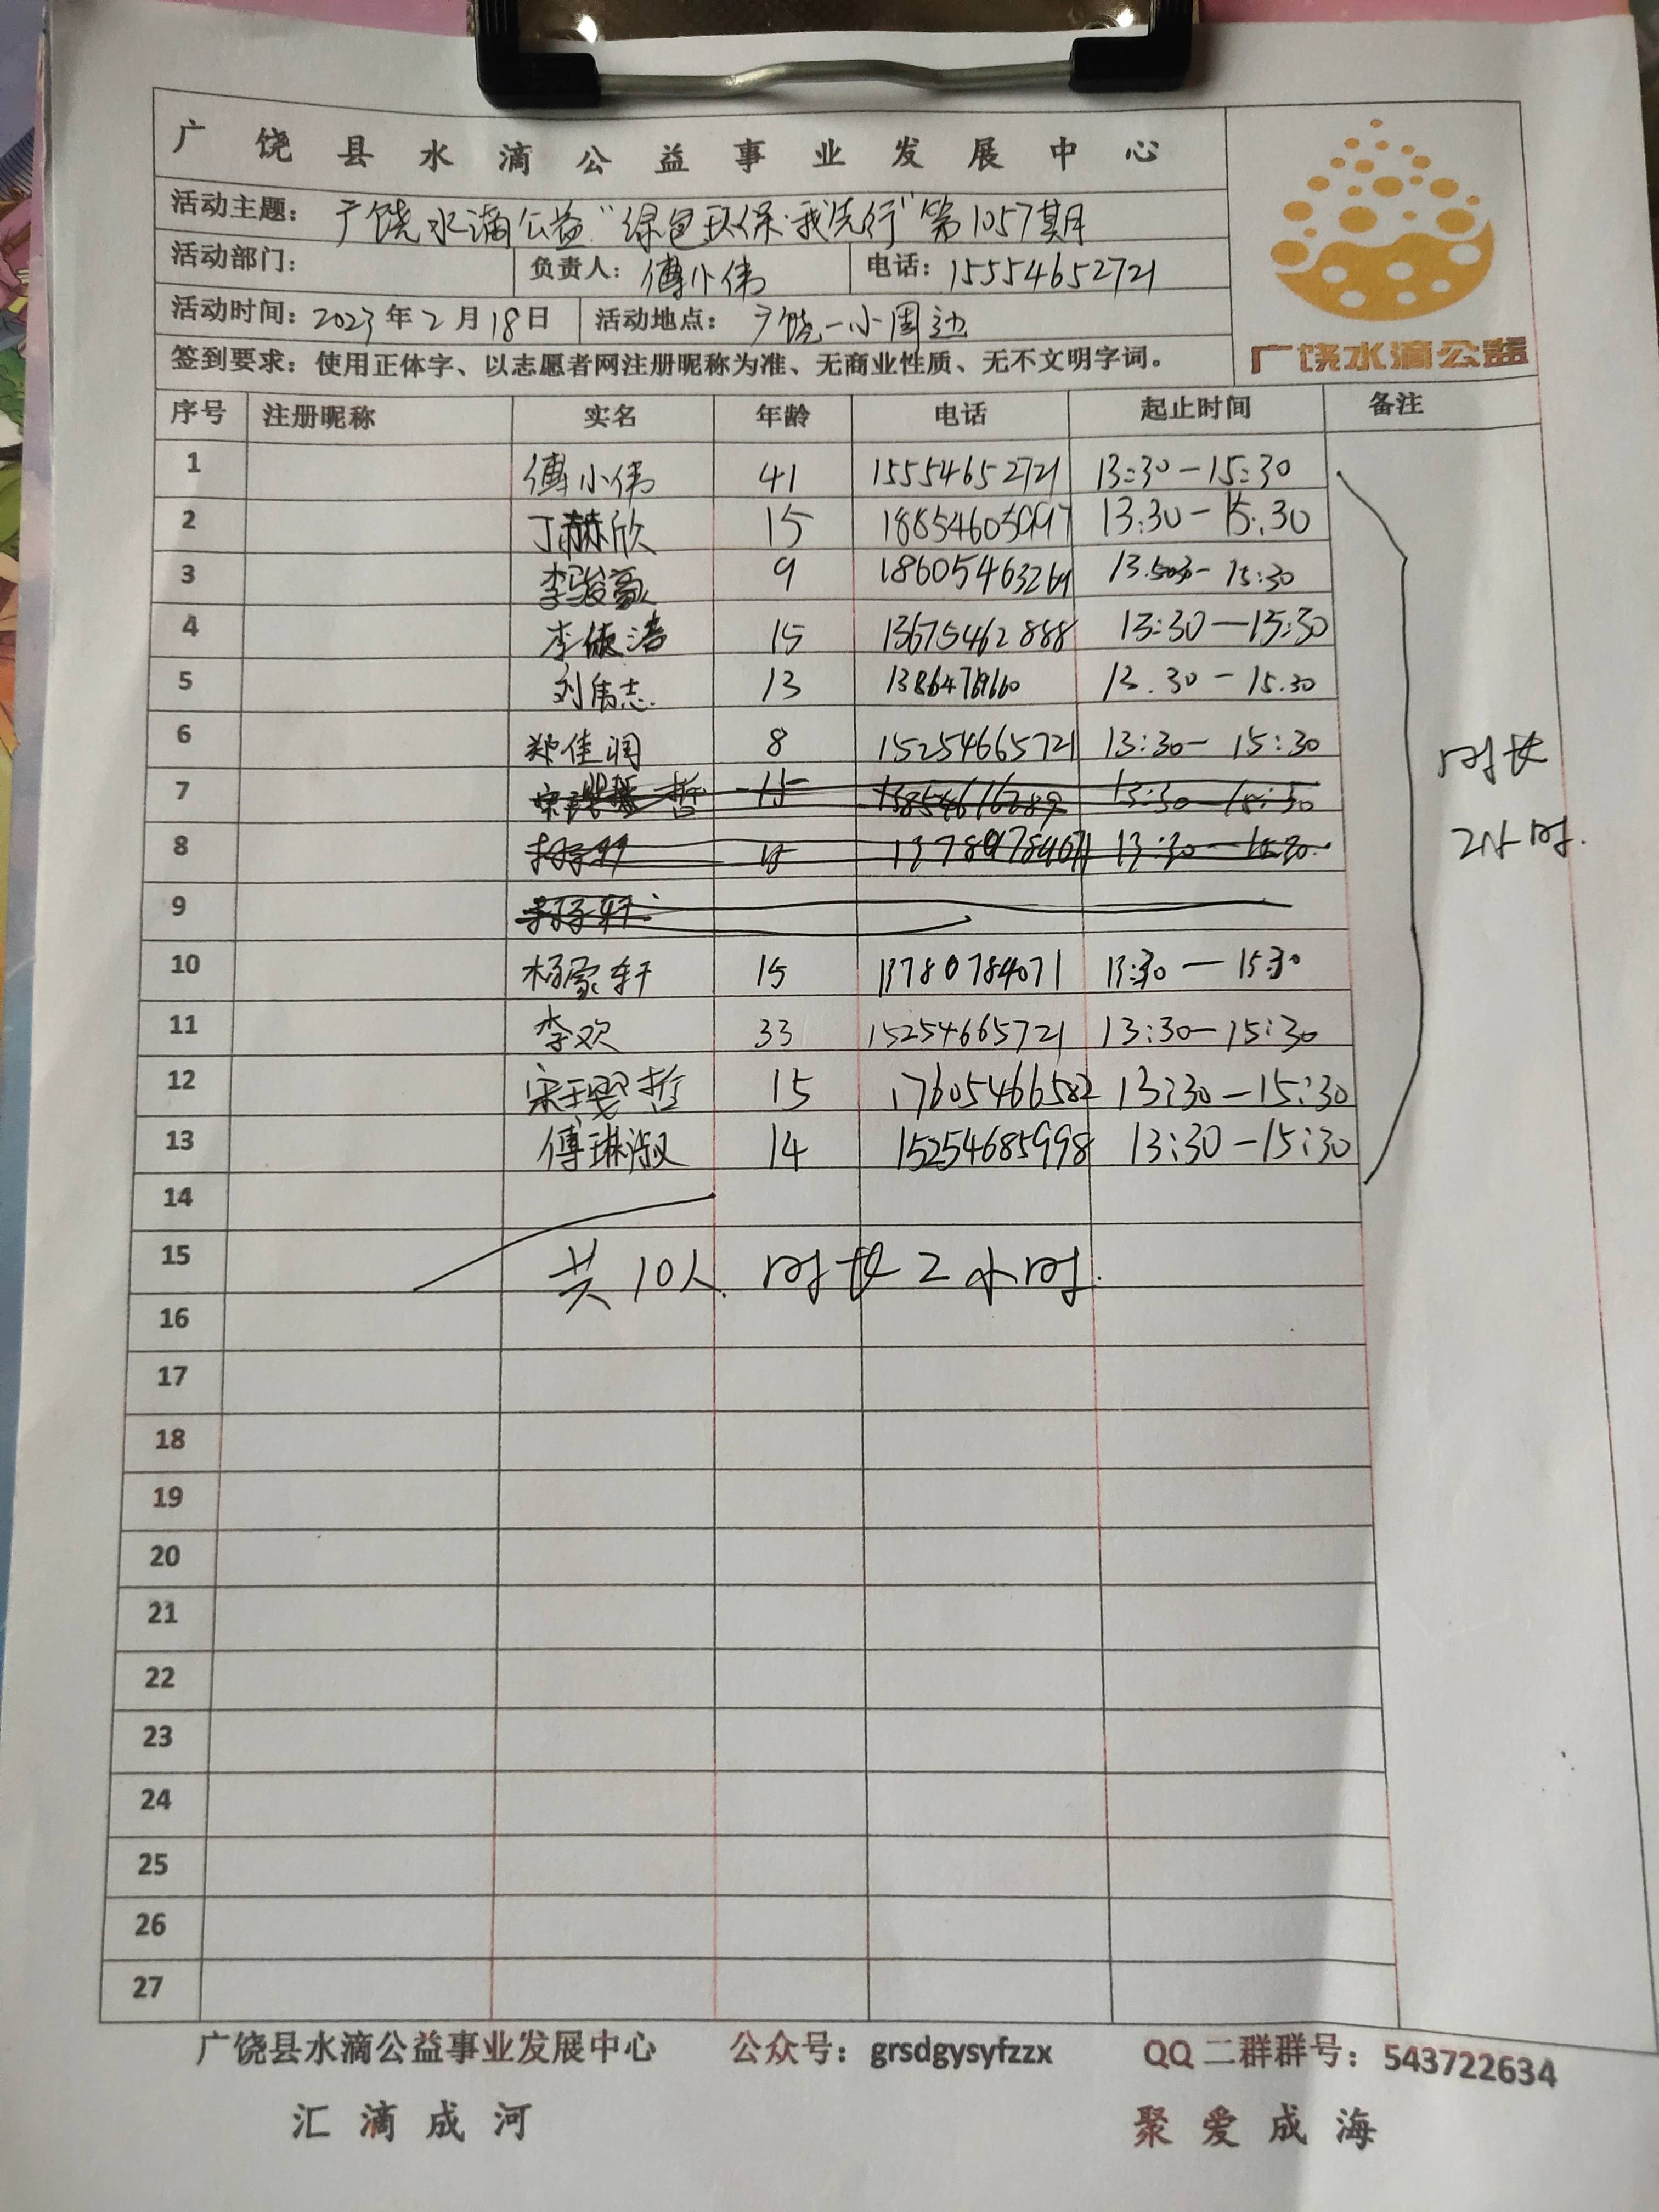 广饶县水滴公益事业发展中心
活动主题：广饶水滴公益“绿色环保·我先行”第1057期
活动部门： 负责人：傅小伟 电话：15554652721
活动时间：2023年2月18日 活动地点：广饶一小周边
签到要求：使用正体字、以志愿者网注册昵称为准、无商业性质、无不文明字词。
广饶水滴公益
序号 注册昵称 实名 年龄 电话 起止时间 备注
1 傅小伟 41 15554652721 13:30-15:30
2 丁赫欣 15 13:30-15:30
3 李骏豪 9 15:30
4 李依洁 15 13675462888 13:30-15:30
5 刘伟志 13 13.30-15.30
6 郑佳润 8 15254665721 13:30-15:30
时长
7
8
2小时.
9
10 杨家轩 15 13780784071 13:30-15:30
11 李欢 33 15254665721 13:30-15:30
12 15 17605466582 13:30-15:30
13 傅琳淑 14 15254685998 13:30-15:30
14
15 共10人 时长2小时.
16
17
18
19
20
21
22
23
24
25
26
27
广饶县水滴公益事业发展中心 公众号：grsdgysyfzzx QQ二群群号：543722634
汇滴成河 聚爱成海